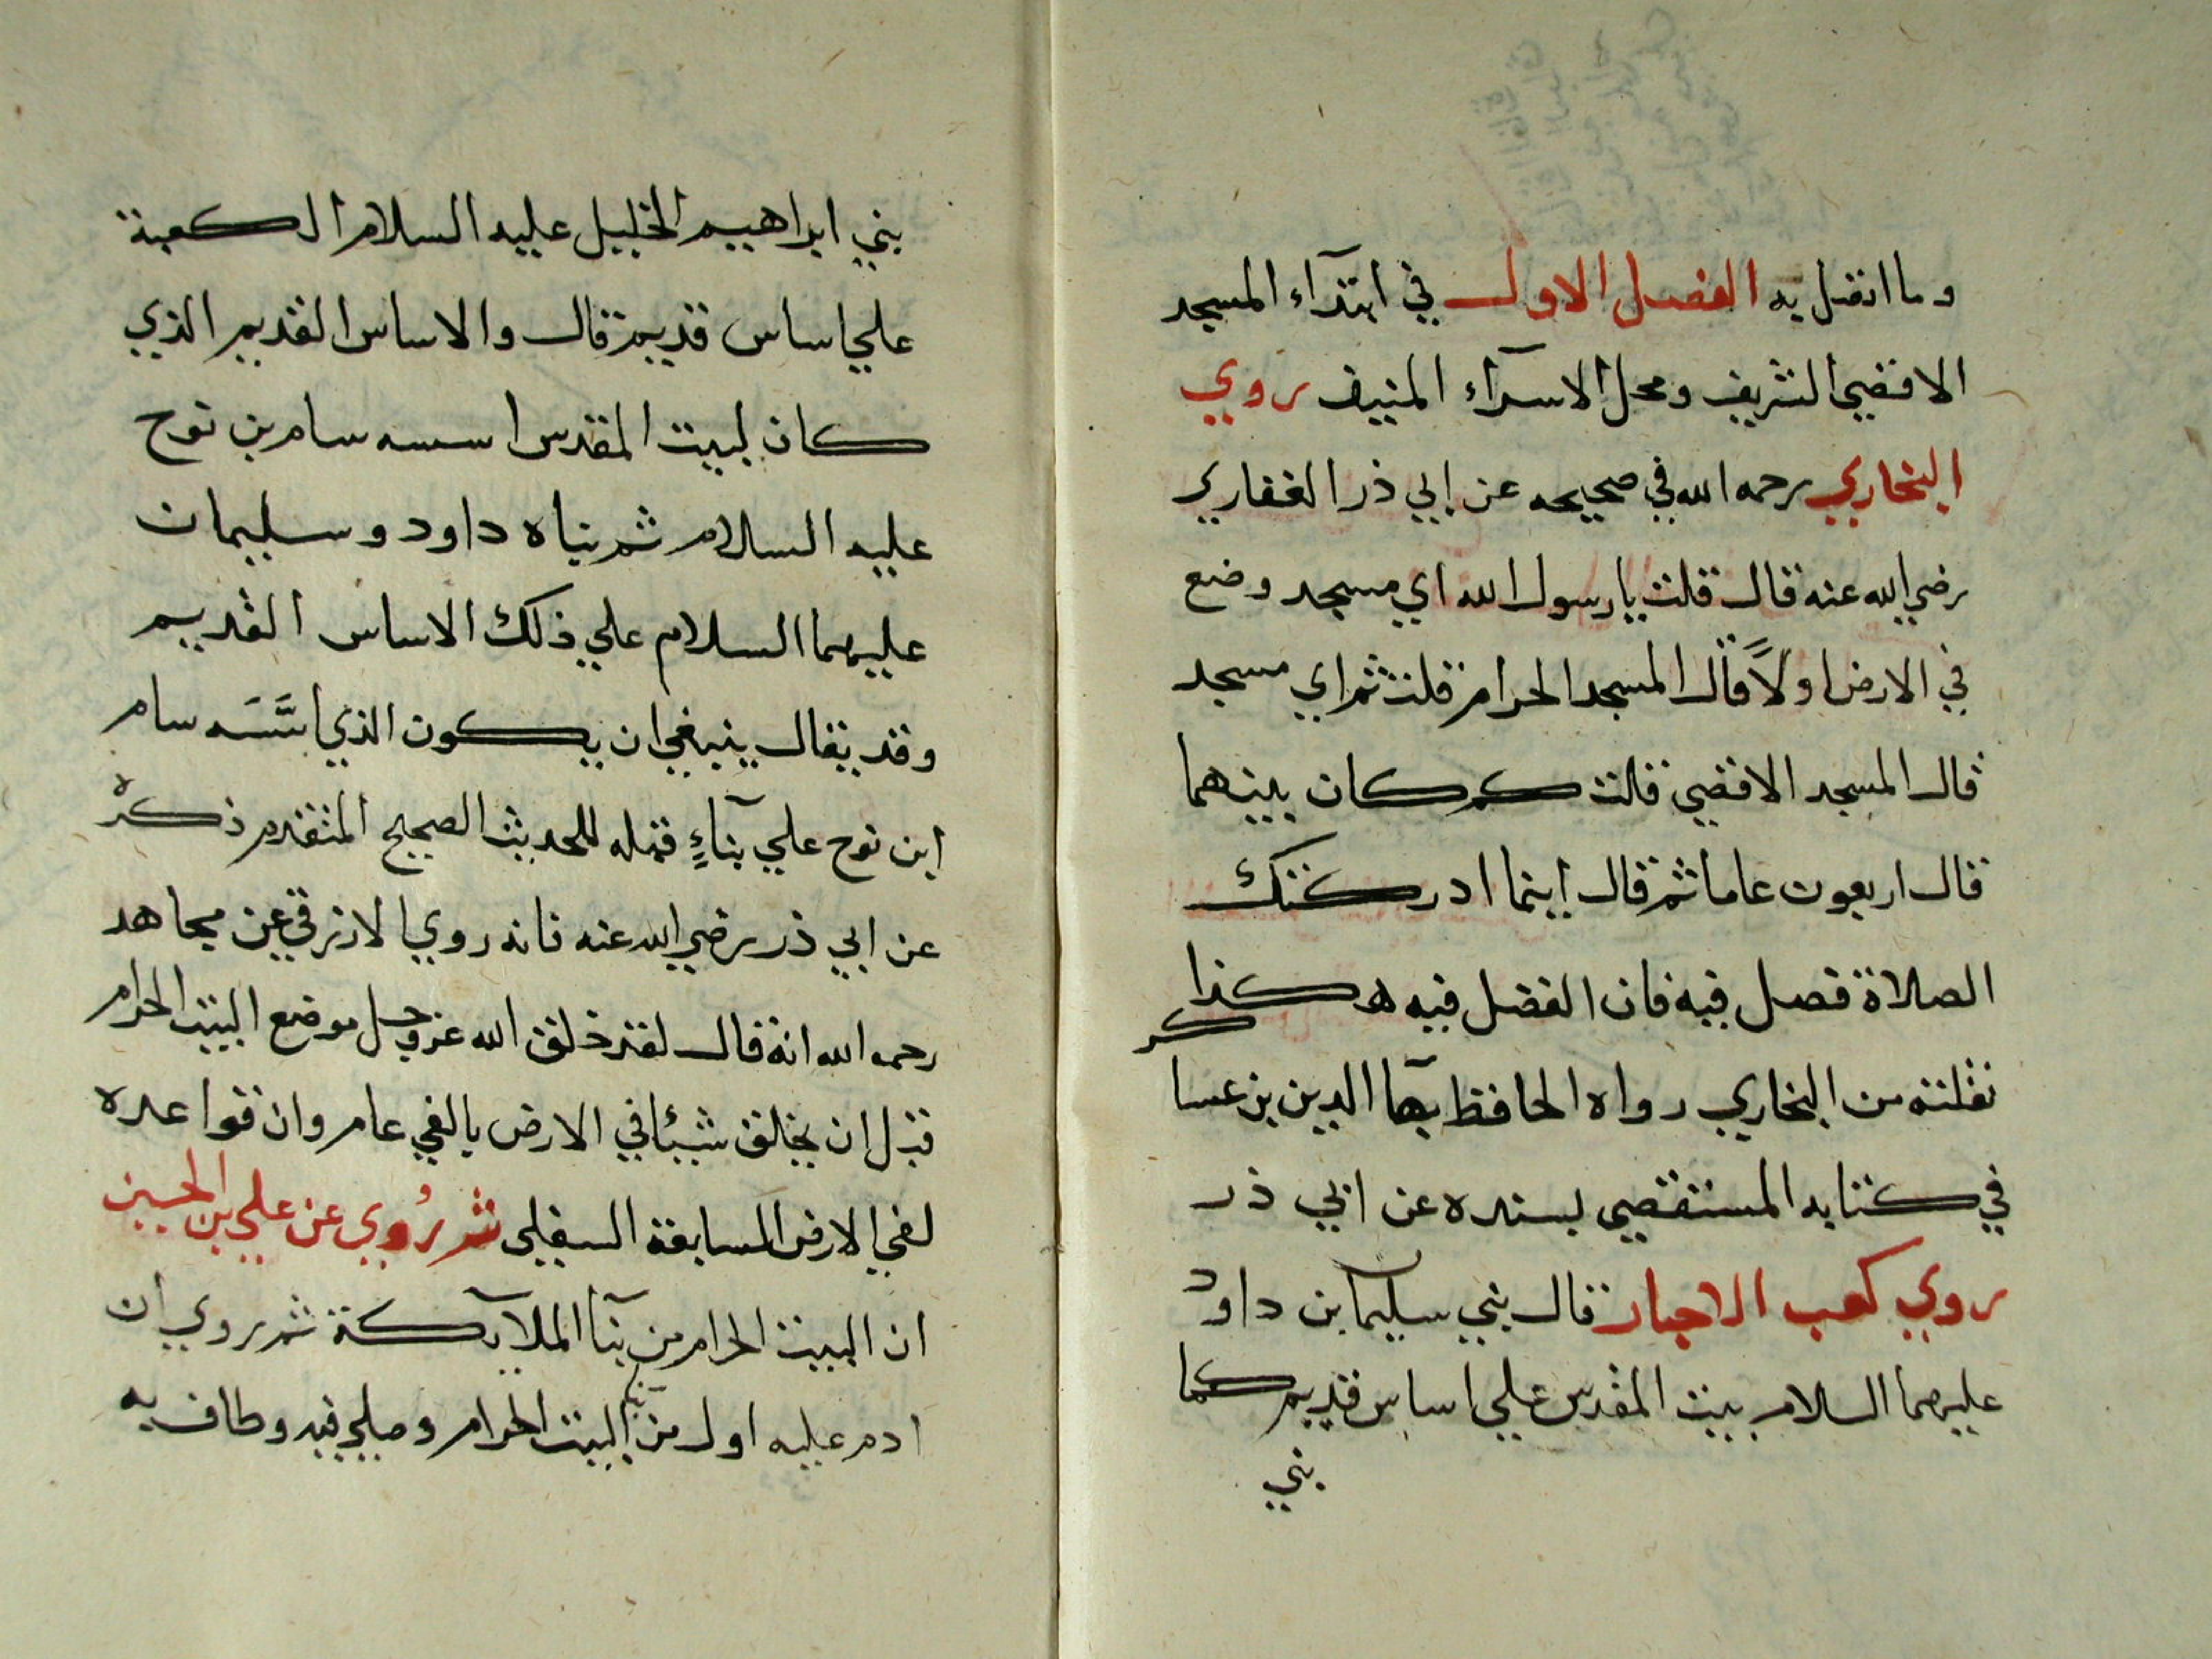 وما اتصل به الفصل الاول في ابتدآء المسجد
الاقصي الشريف ومحل الاسرآء المنيف روي
البخاري رحمه الله في صحيحه عن ابي ذر الغفاري
رضي الله عنه قال قلت يارسول الله اي مسجد وضع
في الارض اولاً قال المسجد الحرام قلت ثم اي مسجد
قال المسجد الاقصي قلت كم كان بينهما
قال اربعون عاما ثم قال اينما ادركتك
الصلاة فصل فيه فان الفضل فيه هكذا
نقلته من البخاري رواه الحافظ بهآ الدين بن عسا كر
في كتابه المستقصي بسنده عن ابي ذر
روي كعب الاحبار قال بني سليمان بن داود
عليهما السلام بيت المقدس علي اساس قديم كما
بني
بني ابراهيم الخليل عليه السلام الكعبة
علي اساس قديم قال والاساس القديم الذي
كان لبيت المقدس اسسه سام بن نوح
عليه السلام ثم بناه داود وسليمان
عليهما السلام علي ذلك الاساس القديم
وقد يقال ينبغي ان يكون الذي اسَّسَه سام
ابن نوح علي بنآءٍ قبله للحديث الصحيح المتقدم ذكره
عن ابي ذر رضي الله عنه فانه روي الازرقي عن مجاهد
رحمه الله انه قال لقد خلق الله عز وجل موضع البيت الحرام
قبل ان يخلق شيئا في الارض بالفي عام وان قواعده
لفي الارض السابعة السفلي ثم رُوي عن علي بن الحسين
ان البيت الحرام من بنآ الملآيكة ثم روي ان
ادم عليه اول من بني البيت الحرام وصلي فيه وطاف به